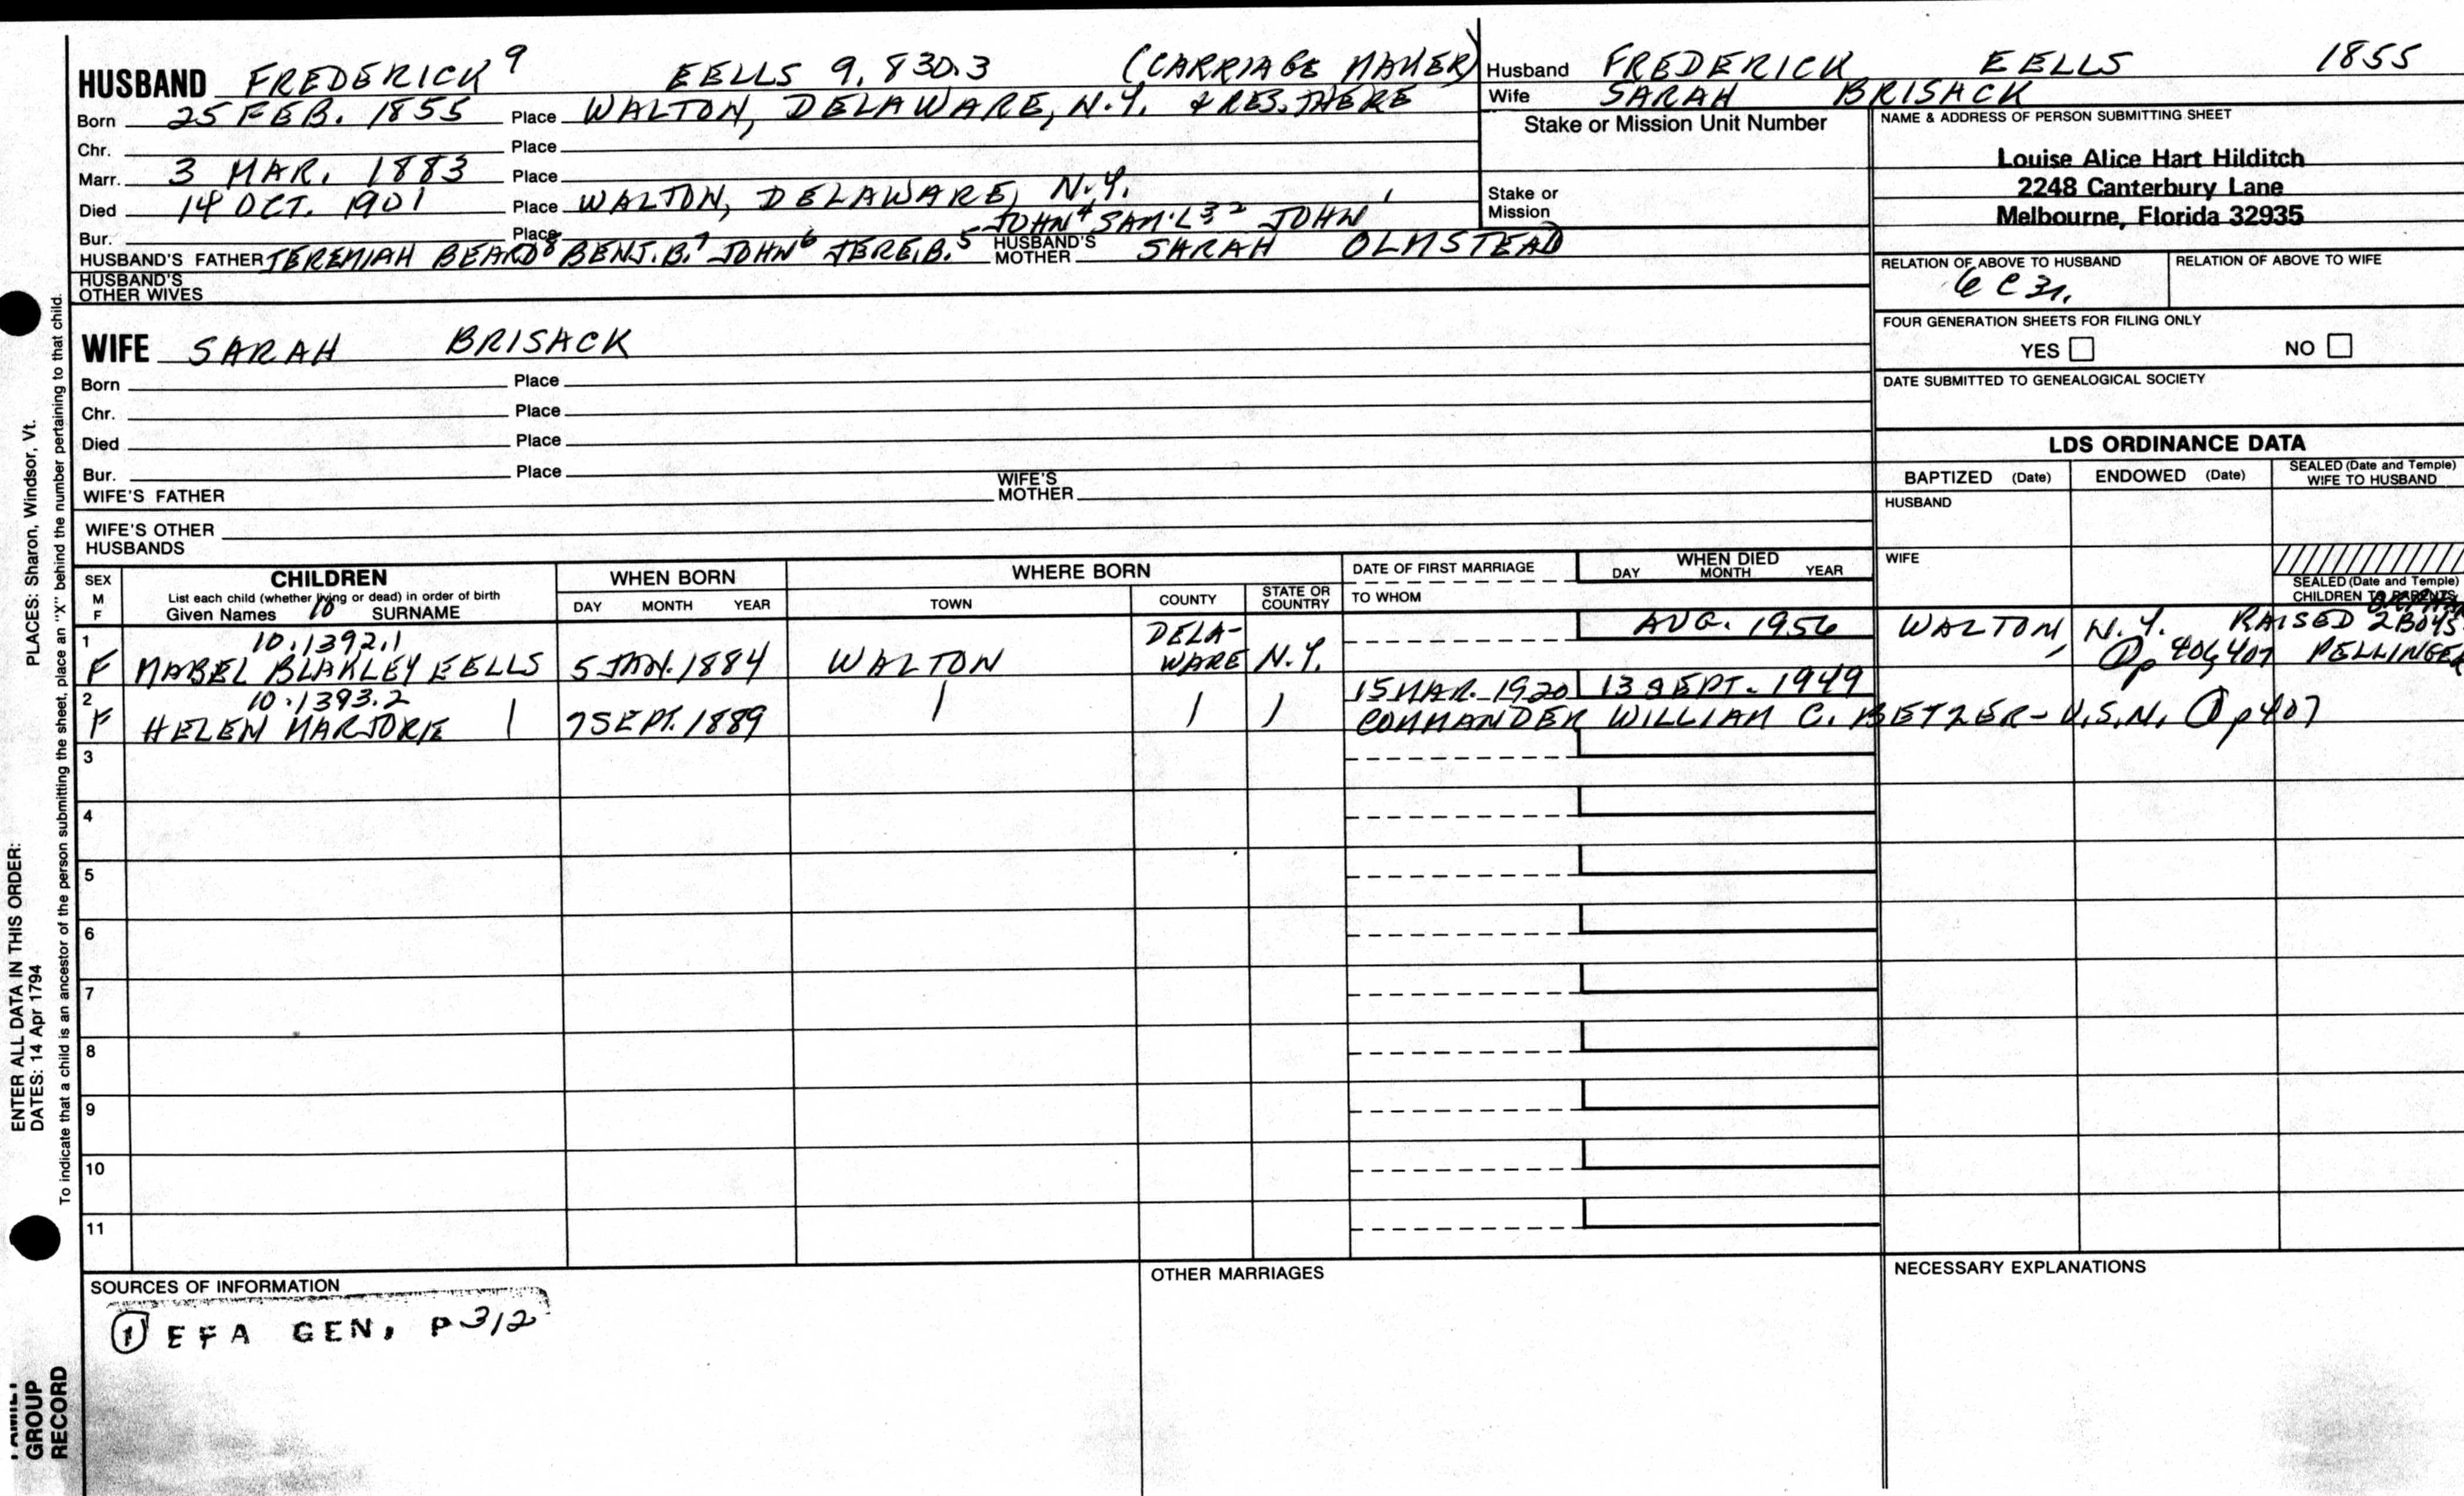 HUSBAND FREDERICK⁹ EELLS 9.830.3 (CARRIAGE MAKER)
Born 25 FEB. 1855 Place WALTON, DELAWARE, N.Y. & RES. THERE
Chr. Place
Marr. 3 MAR. 1883 Place
Died 14 OCT. 1901 Place WALTON, DELAWARE, N.Y.
Bur. Place JOHN⁴ SAM'L³ ² JOHN¹
HUSBAND'S FATHER JEREMIAH BEARD⁸ BENJ. B.⁷ JOHN⁶ JERE. B.⁵ HUSBAND'S MOTHER SARAH OLMSTEAD
HUSBAND'S OTHER WIVES
WIFE SARAH BRISACK
Born Place
Chr. Place
Died Place
Bur. Place
WIFE'S FATHER WIFE'S MOTHER
WIFE'S OTHER HUSBANDS
Husband FREDERICK EELLS 1855
Wife SARAH BRISACK
Stake or Mission Unit Number
Stake or Mission
NAME & ADDRESS OF PERSON SUBMITTING SHEET
Louise Alice Hart Hilditch
2248 Canterbury Lane
Melbourne, Florida 32935
RELATION OF ABOVE TO HUSBAND RELATION OF ABOVE TO WIFE
6 C 3r.
FOUR GENERATION SHEETS FOR FILING ONLY
YES NO
DATE SUBMITTED TO GENEALOGICAL SOCIETY
LDS ORDINANCE DATA
BAPTIZED (Date) ENDOWED (Date) SEALED (Date and Temple) WIFE TO HUSBAND
HUSBAND
WIFE
SEALED (Date and Temple) CHILDREN TO PARENTS
SEX M F CHILDREN List each child (whether living or dead) in order of birth Given Names 10 SURNAME WHEN BORN DAY MONTH YEAR WHERE BORN TOWN COUNTY STATE OR COUNTRY DATE OF FIRST MARRIAGE TO WHOM WHEN DIED DAY MONTH YEAR
1 10.1392.1 DELA- AUG. 1956 WALTON, N.Y. RAISED 2 BOYS
F MABEL BLAKLEY EELLS 5 JAN. 1884 WALTON WARE N.Y. ① p 406, 407 PELLINGER
2 10.1393.2 15 MAR. 1920 13 SEPT. 1949
F HELEN MARJORIE | 7 SEPT. 1889 | | | COMMANDER WILLIAM C. BETZER - U.S.N. ① p 407
3
4
5
6
7
8
9
10
11
SOURCES OF INFORMATION
① EFA GEN, P 312
OTHER MARRIAGES
NECESSARY EXPLANATIONS
ENTER ALL DATA IN THIS ORDER: PLACES: Sharon, Windsor, Vt.
DATES: 14 Apr 1794
To indicate that a child is an ancestor of the person submitting the sheet, place an "X" behind the number pertaining to that child.
FAMILY
GROUP
RECORD